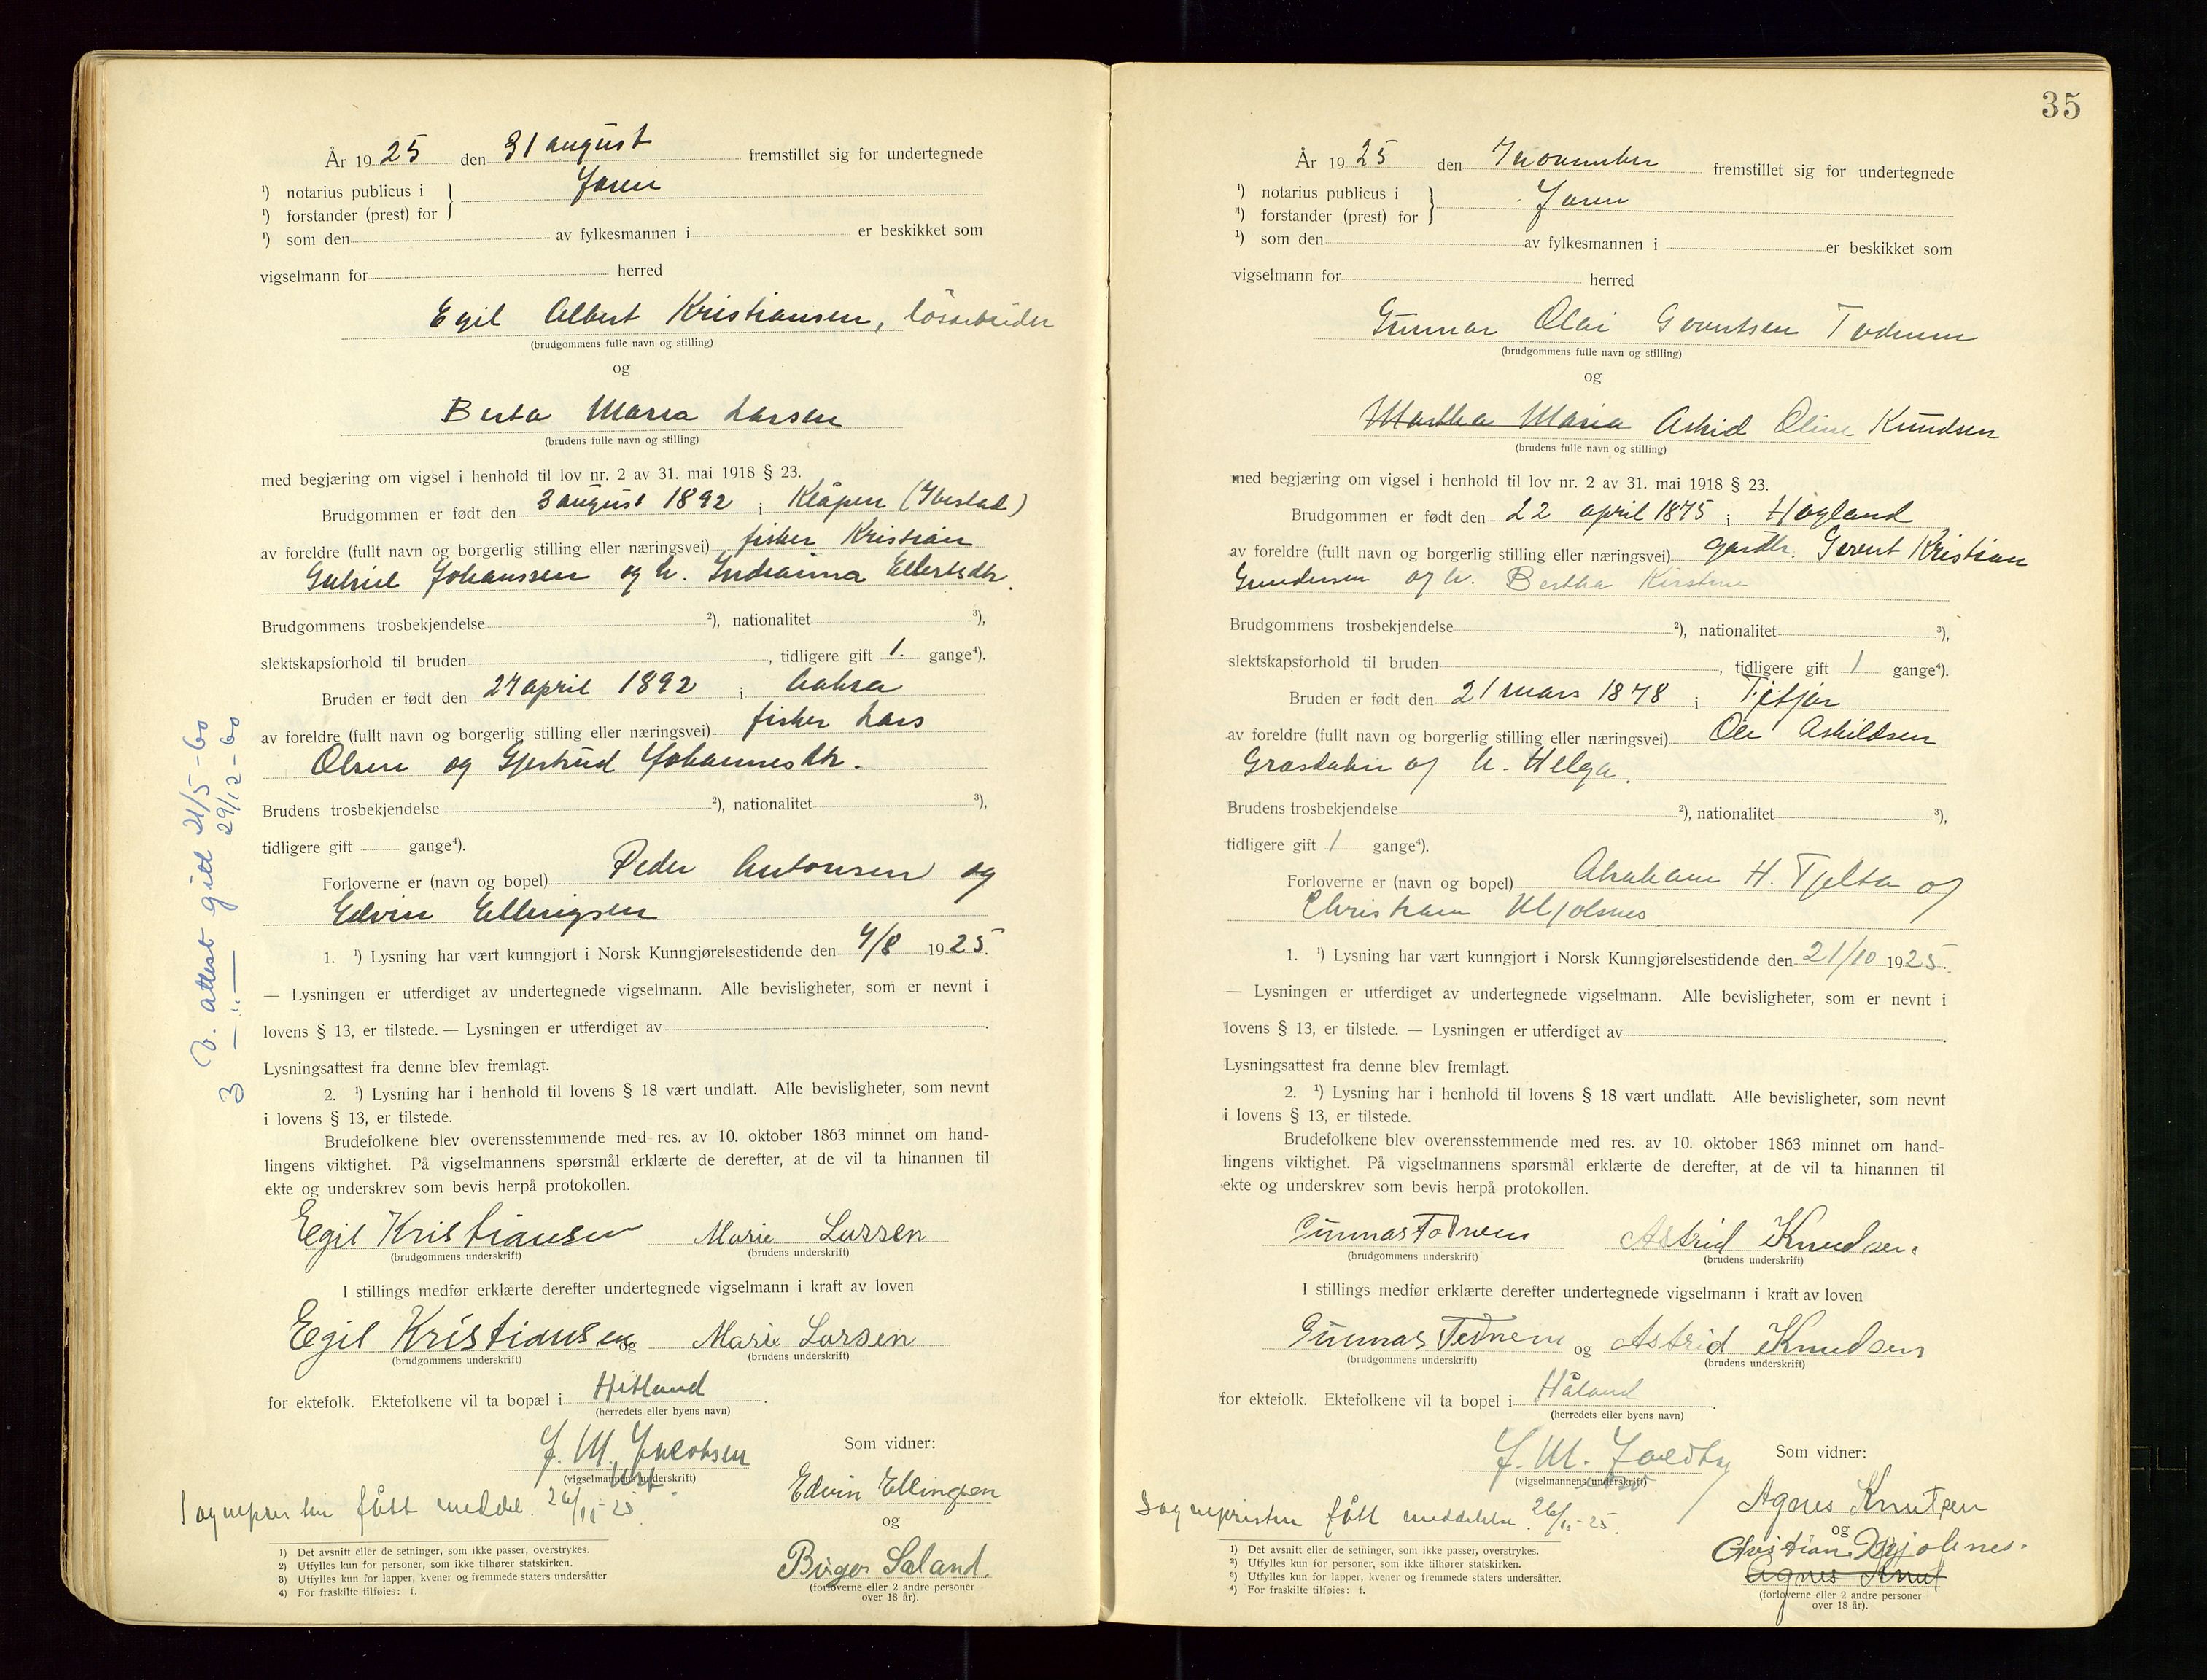 År 1925 den 31 august fremstillet sig for undertegnede
¹) notarius publicus i
Jæren
¹) forstander (prest) for
¹) som den av fylkesmannen i er beskikket som
vigselmann for herred
Egil Albert Kristiansen, løsarbeider
(brudgommens fulle navn og stilling)
og
Berta Maria Larsen
(brudens fulle navn og stilling)
med begjæring om vigsel i henhold til lov nr. 2 av 31. mai 1918 § 23.
Brudgommen er født den 3 august 1892 i Kläpen (Ibestad)
av foreldre (fullt navn og borgerlig stilling eller næringsvei) fisker Kristian
Gabriel Johanssen og h. Indianna Ellertsdtr.
Brudgommens trosbekjendelse ²), nationalitet ³),
slektskapsforhold til bruden , tidligere gift 1. gange⁴).
Bruden er født den 27 april 1892 i
av foreldre (fullt navn og borgerlig stilling eller næringsvei) fisker Lars
Olsen og Gjertrud Johannesdtr.
Brudens trosbekjendelse ²), nationalitet ³),
tidligere gift gange⁴).
Forloverne er (navn og bopel) Peder Antonsen og
Edvin Ellingsen
1. ¹) Lysning har vært kunngjort i Norsk Kunngjørelsestidende den 4/8 1925.
— Lysningen er utferdiget av undertegnede vigselmann. Alle bevisligheter, som er nevnt i
lovens § 13, er tilstede. — Lysningen er utferdiget av .
Lysningsattest fra denne blev fremlagt.
2. ¹) Lysning har i henhold til lovens § 18 vært undlatt. Alle bevisligheter, som nevnt
i lovens § 13, er tilstede.
Brudefolkene blev overensstemmende med res. av 10. oktober 1863 minnet om hand-
lingens viktighet. På vigselmannens spørsmål erklærte de derefter, at de vil ta hinannen til
ekte og underskrev som bevis herpå protokollen.
Egil Kristiansen Marie Larsen
(brudgommens underskrift) (brudens underskrift)
I stillings medfør erklærte derefter undertegnede vigselmann i kraft av loven
Egil Kristiansen og Marie Larsen
(brudgommens underskrift) (brudens underskrift)
for ektefolk. Ektefolkene vil ta bopæl i Hetland.
(herredets eller byens navn)
J. M. Jacobsen
(vigselmannens underskrift)
Som vidner:
Edvin Ellingsen
og
Birger Saland.
(forloverne eller 2 andre personer
over 18 år).
Sognepresten fått meddel. 26/11-25
1) Det avsnitt eller de setninger, som ikke passer, overstrykes.
2) Utfylles kun for personer, som ikke tilhører statskirken.
3) Utfylles kun for lapper, kvener og fremmede staters undersåtter
4) For fraskilte tilføies: f.
V. attest gitt 21/5-60
3 —"— 29/12-60
35
År 1925 den 7 november fremstillet sig for undertegnede
¹) notarius publicus i
Jæren
¹) forstander (prest) for
¹) som den av fylkesmannen i er beskikket som
vigselmann for herred
Gunnar Olai Todnem
(brudgommens fulle navn og stilling)
og
Martha Maria Astrid Oline Knudsen
(brudens fulle navn og stilling)
med begjæring om vigsel i henhold til lov nr. 2 av 31. mai 1918 § 23.
Brudgommen er født den 22 april 1875 i Høgland
av foreldre (fullt navn og borgerlig stilling eller næringsvei) gardbr. Gerent Kristian
Gundersen og h. Bertha Kirstine
Brudgommens trosbekjendelse ²), nationalitet ³),
slektskapsforhold til bruden , tidligere gift 1 gange⁴).
Bruden er født den 21 mars 1878 i
av foreldre (fullt navn og borgerlig stilling eller næringsvei) Ole Askildsen
Grasdalen og h. Helga.
Brudens trosbekjendelse ²), nationalitet ³),
tidligere gift 1 gange⁴).
Forloverne er (navn og bopel) Abraham H. Tjelta og
Christian Mjølsnes
1. ¹) Lysning har vært kunngjort i Norsk Kunngjørelsestidende den 21/10 1925.
— Lysningen er utferdiget av undertegnede vigselmann. Alle bevisligheter, som er nevnt i
lovens § 13, er tilstede. — Lysningen er utferdiget av .
Lysningsattest fra denne blev fremlagt.
2. ¹) Lysning har i henhold til lovens § 18 vært undlatt. Alle bevisligheter, som nevnt
i lovens § 13, er tilstede.
Brudefolkene blev overensstemmende med res. av 10. oktober 1863 minnet om hand-
lingens viktighet. På vigselmannens spørsmål erklærte de derefter, at de vil ta hinannen til
ekte og underskrev som bevis herpå protokollen.
Gunnar Todnem Astrid Knudsen.
(brudgommens underskrift) (brudens underskrift)
I stillings medfør erklærte derefter undertegnede vigselmann i kraft av loven
Gunnar Todnem og Astrid Knudsen
(brudgommens underskrift) (brudens underskrift)
for ektefolk. Ektefolkene vil ta bopel i Håland.
(herredets eller byens navn)
J. M.
(vigselmannens underskrift)
Som vidner:
Agnes Knutsen
og
Christian Mjølsnes.
Agnes Knut
(forloverne eller 2 andre personer
over 18 år).
Sognepresten fått meddelelse. 26/11-25.
1) Det avsnitt eller de setninger, som ikke passer, overstrykes.
2) Utfylles kun for personer, som ikke tilhører statskirken.
3) Utfylles kun for lapper, kvener og fremmede staters undersåtter.
4) For fraskilte tilføies: f.